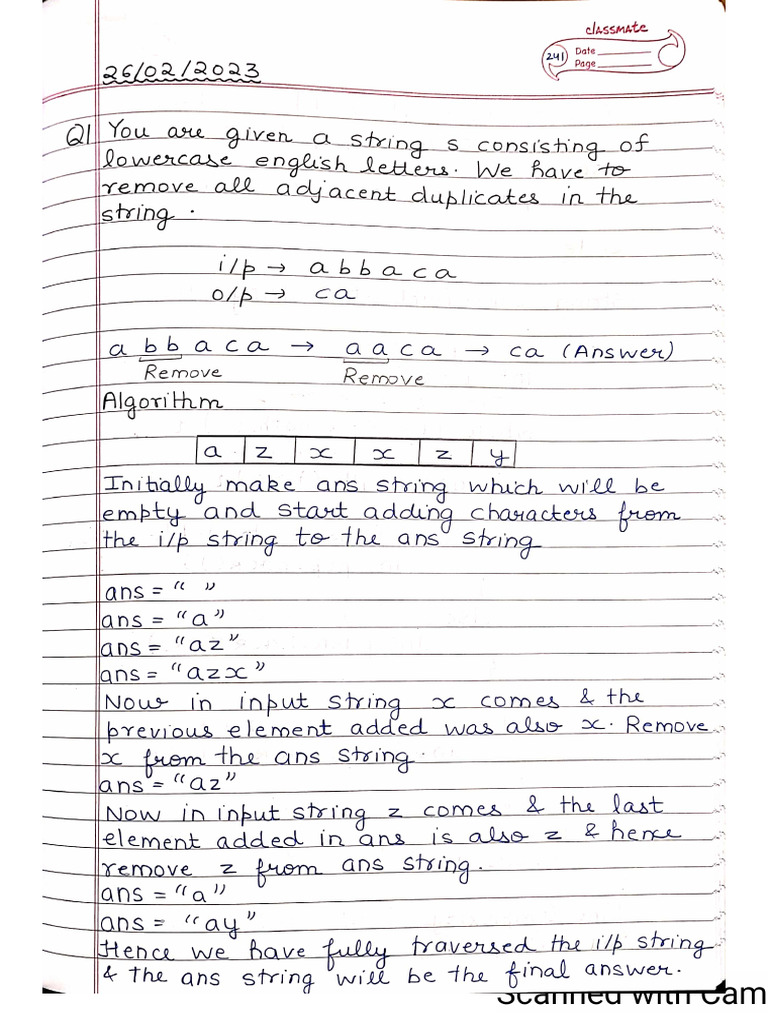 classmate
241
Date
Page
26/02/2023
Q1 You are given a string s consisting of
lowercase english letters. We have to
remove all adjacent duplicates in the
string.
i/p → a b b a c a
o/p → ca
a b b a c a → a a c a → ca (Answer)
Remove Remove
Algorithm
a z x x z y
Initially make ans string which will be
empty and start adding characters from
the i/p string to the ans string
ans = " "
ans = "a"
ans = "az"
ans = "azx"
Now in input string x comes & the
previous element added was also x. Remove
x from the ans string.
ans = "az"
Now in input string z comes & the last
element added in ans is also z & hence
remove z from ans string.
ans = "a"
ans = "ay"
Hence we have fully traversed the i/p string
& the ans string will be the final answer.
Scanned with Cam